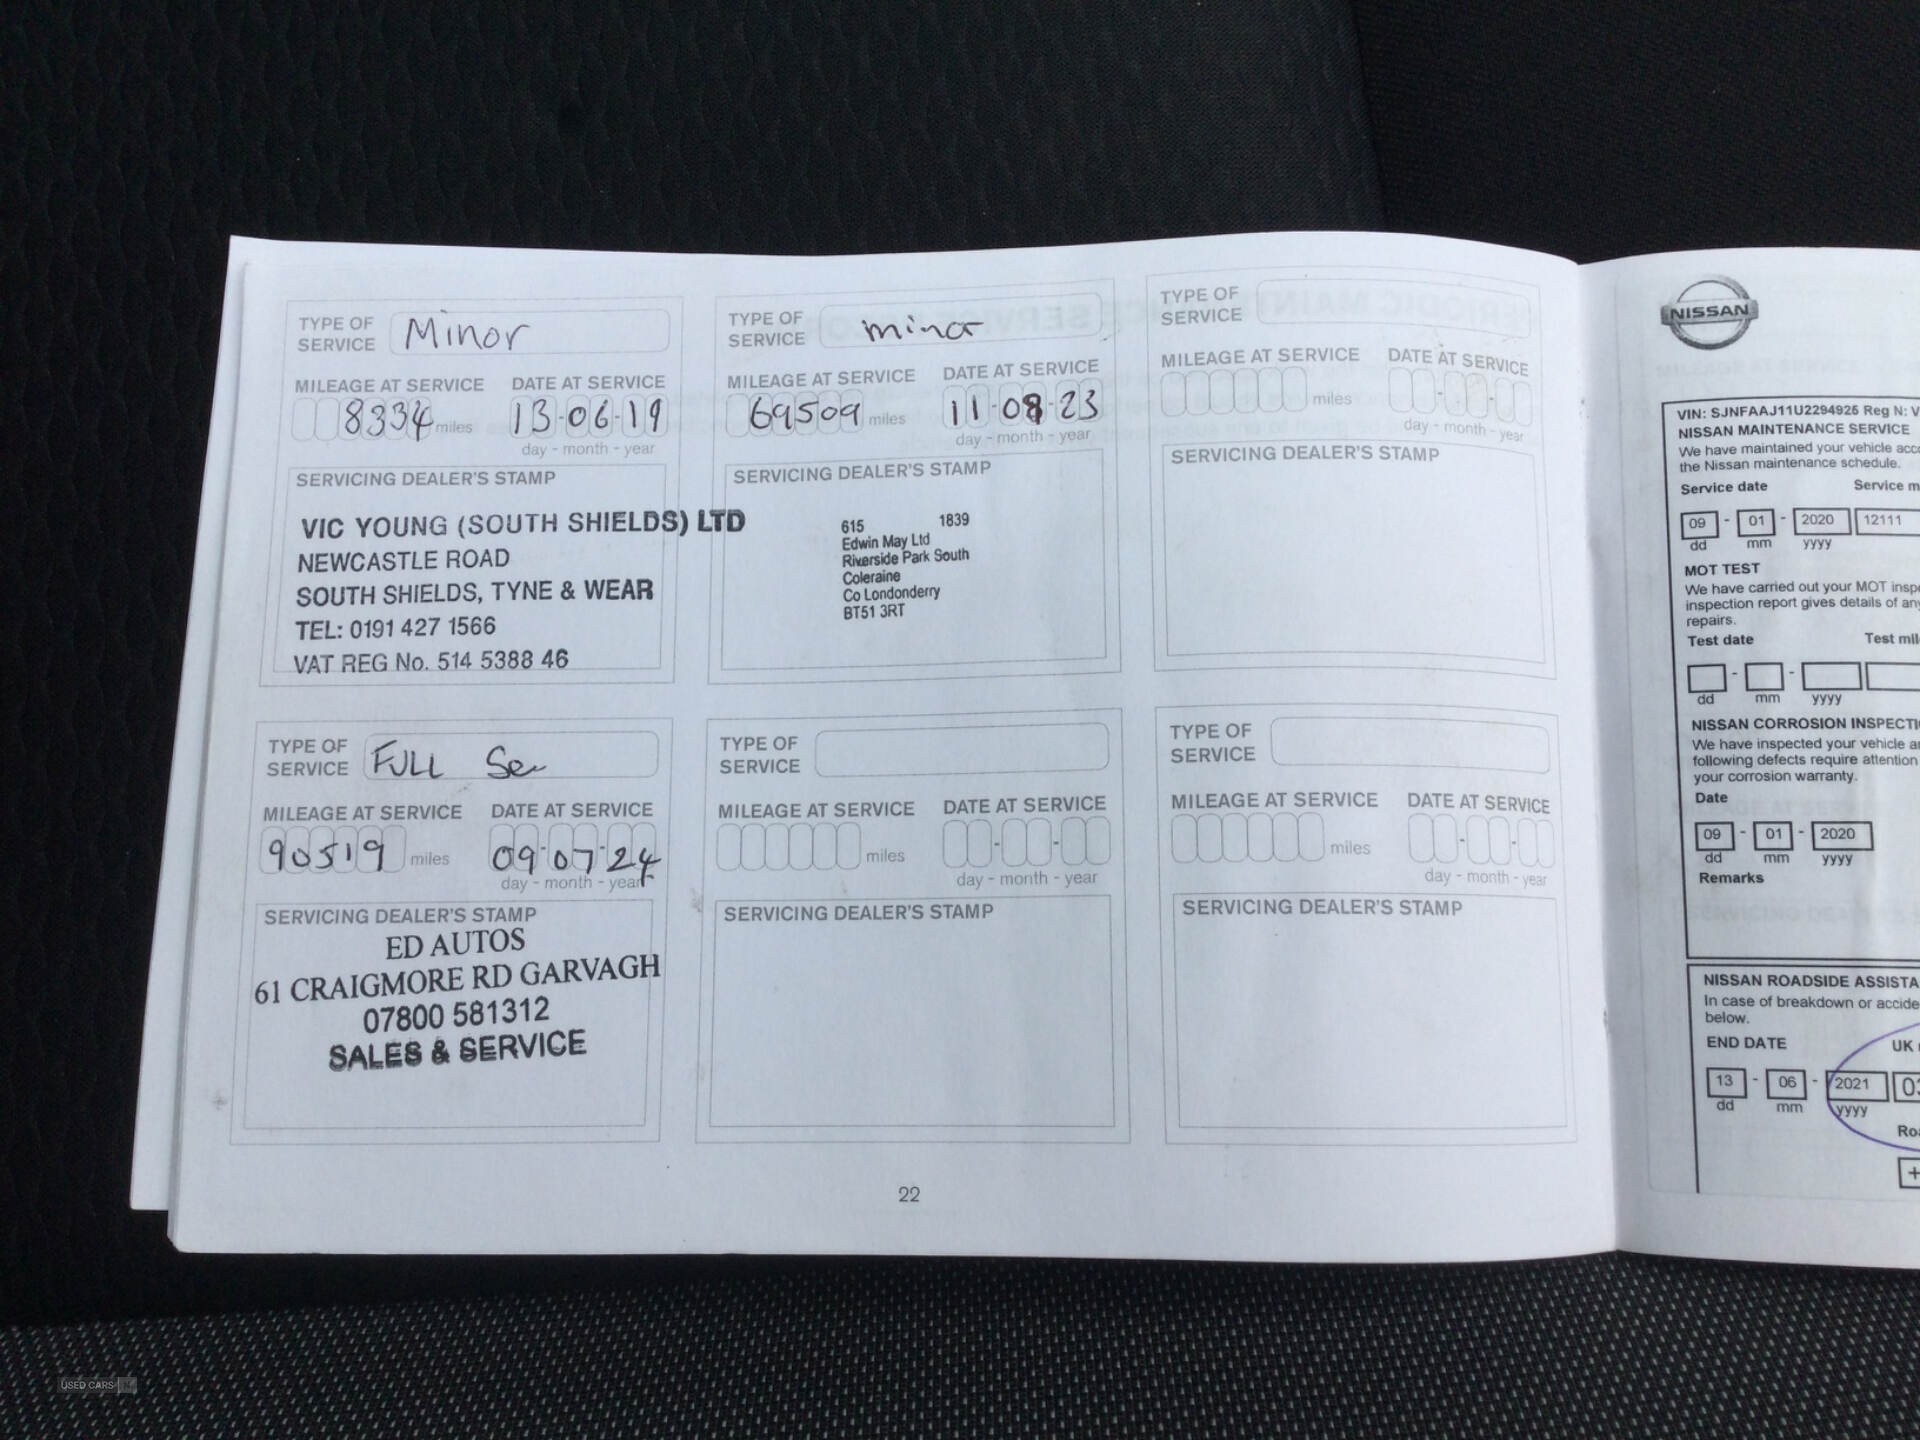 TYPE OF
SERVICE
Minor
MILEAGE AT SERVICE
DATE AT SERVICE
8334 miles
13-06-19
day - month - year
SERVICING DEALER'S STAMP
VIC YOUNG (SOUTH SHIELDS) LTD
NEWCASTLE ROAD
SOUTH SHIELDS, TYNE & WEAR
TEL: 0191 427 1566
VAT REG No. 514 5388 46
TYPE OF
SERVICE
minor
MILEAGE AT SERVICE
DATE AT SERVICE
69509 miles
11-08-23
day - month - year
SERVICING DEALER'S STAMP
615 1839
Edwin May Ltd
Riverside Park South
Coleraine
Co Londonderry
BT51 3RT
TYPE OF
SERVICE
MILEAGE AT SERVICE
DATE AT SERVICE
miles
day - month - year
SERVICING DEALER'S STAMP
TYPE OF
SERVICE
FULL Ser
MILEAGE AT SERVICE
DATE AT SERVICE
90519 miles
09-07-24
day - month - year
SERVICING DEALER'S STAMP
ED AUTOS
61 CRAIGMORE RD GARVAGH
07800 581312
SALES & SERVICE
TYPE OF
SERVICE
MILEAGE AT SERVICE
DATE AT SERVICE
miles
day - month - year
SERVICING DEALER'S STAMP
TYPE OF
SERVICE
MILEAGE AT SERVICE
DATE AT SERVICE
miles
day - month - year
SERVICING DEALER'S STAMP
22
NISSAN
VIN: SJNFAAJ11U2294925 Reg N: V
NISSAN MAINTENANCE SERVICE
We have maintained your vehicle acc
the Nissan maintenance schedule.
Service date Service m
09 - 01 - 2020 12111
dd mm yyyy
MOT TEST
We have carried out your MOT inspe
inspection report gives details of any
repairs.
Test date Test mil
dd mm yyyy
NISSAN CORROSION INSPECTI
We have inspected your vehicle a
following defects require attention
your corrosion warranty.
Date
09 - 01 - 2020
dd mm yyyy
Remarks
NISSAN ROADSIDE ASSISTA
In case of breakdown or accide
below.
END DATE UK
13 - 06 - 2021 03
dd mm yyyy
Roa
+
USED CARS NI